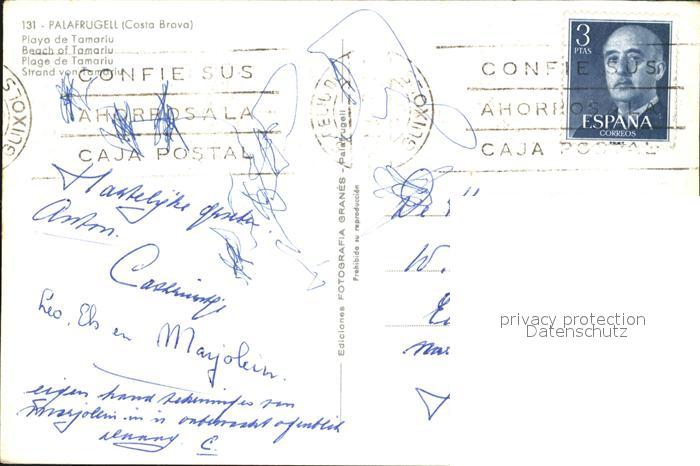 131 - PALAFRUGELL (Costa Brava)
Playa de Tamariu
Beach of Tamariu
Plage de Tamariu
Strand von Tamariu
CONFIE SUS
AHORROS A LA
CAJA POSTAL
GUIXOLS
Hartelijke
Anton.
Leo, Els en Marjolein.
eigen hand tekeningen van
Marjolein in 'n onbewaakt ogenblik
C.
Ediciones FOTOGRAFIA GRANÉS - Palafrugell
Prohibida su reproducción
3
PTAS
ESPAÑA
CORREOS
CONFIE SUS
AHORROS A
CAJA POSTAL
De
W.
privacy protection
Datenschutz